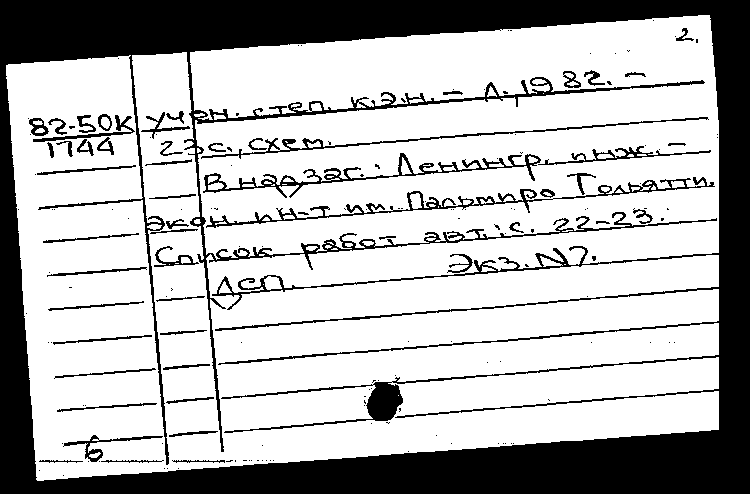 2.
82-50К учен. степ. к.э.н. – Л., 1982. –
1744 23 с., схем.
В надзаг.: Ленингр. инж.-
экон. ин-т им. Пальмиро Тольятти.
Список работ авт.: с. 22-23.
ДСП. Экз. N7.
6